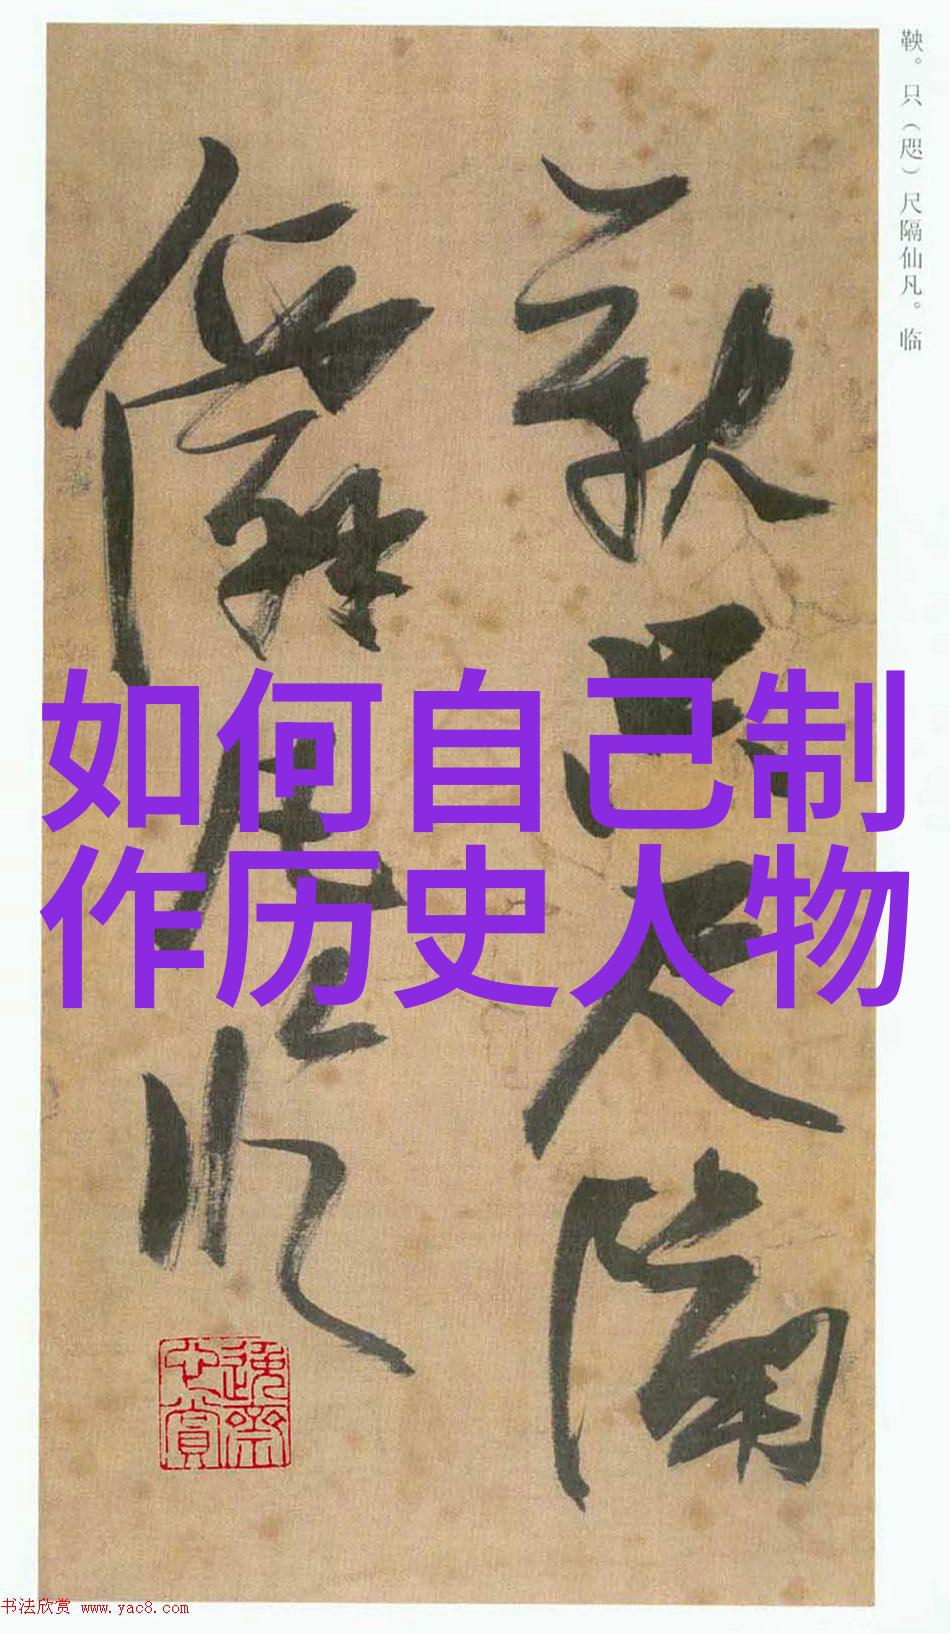 鞅。只（咫）尺隔仙凡。临
鞅只尺隔
僊凡临
如何自己制
作历史人物
书法欣赏 www.yac8.com